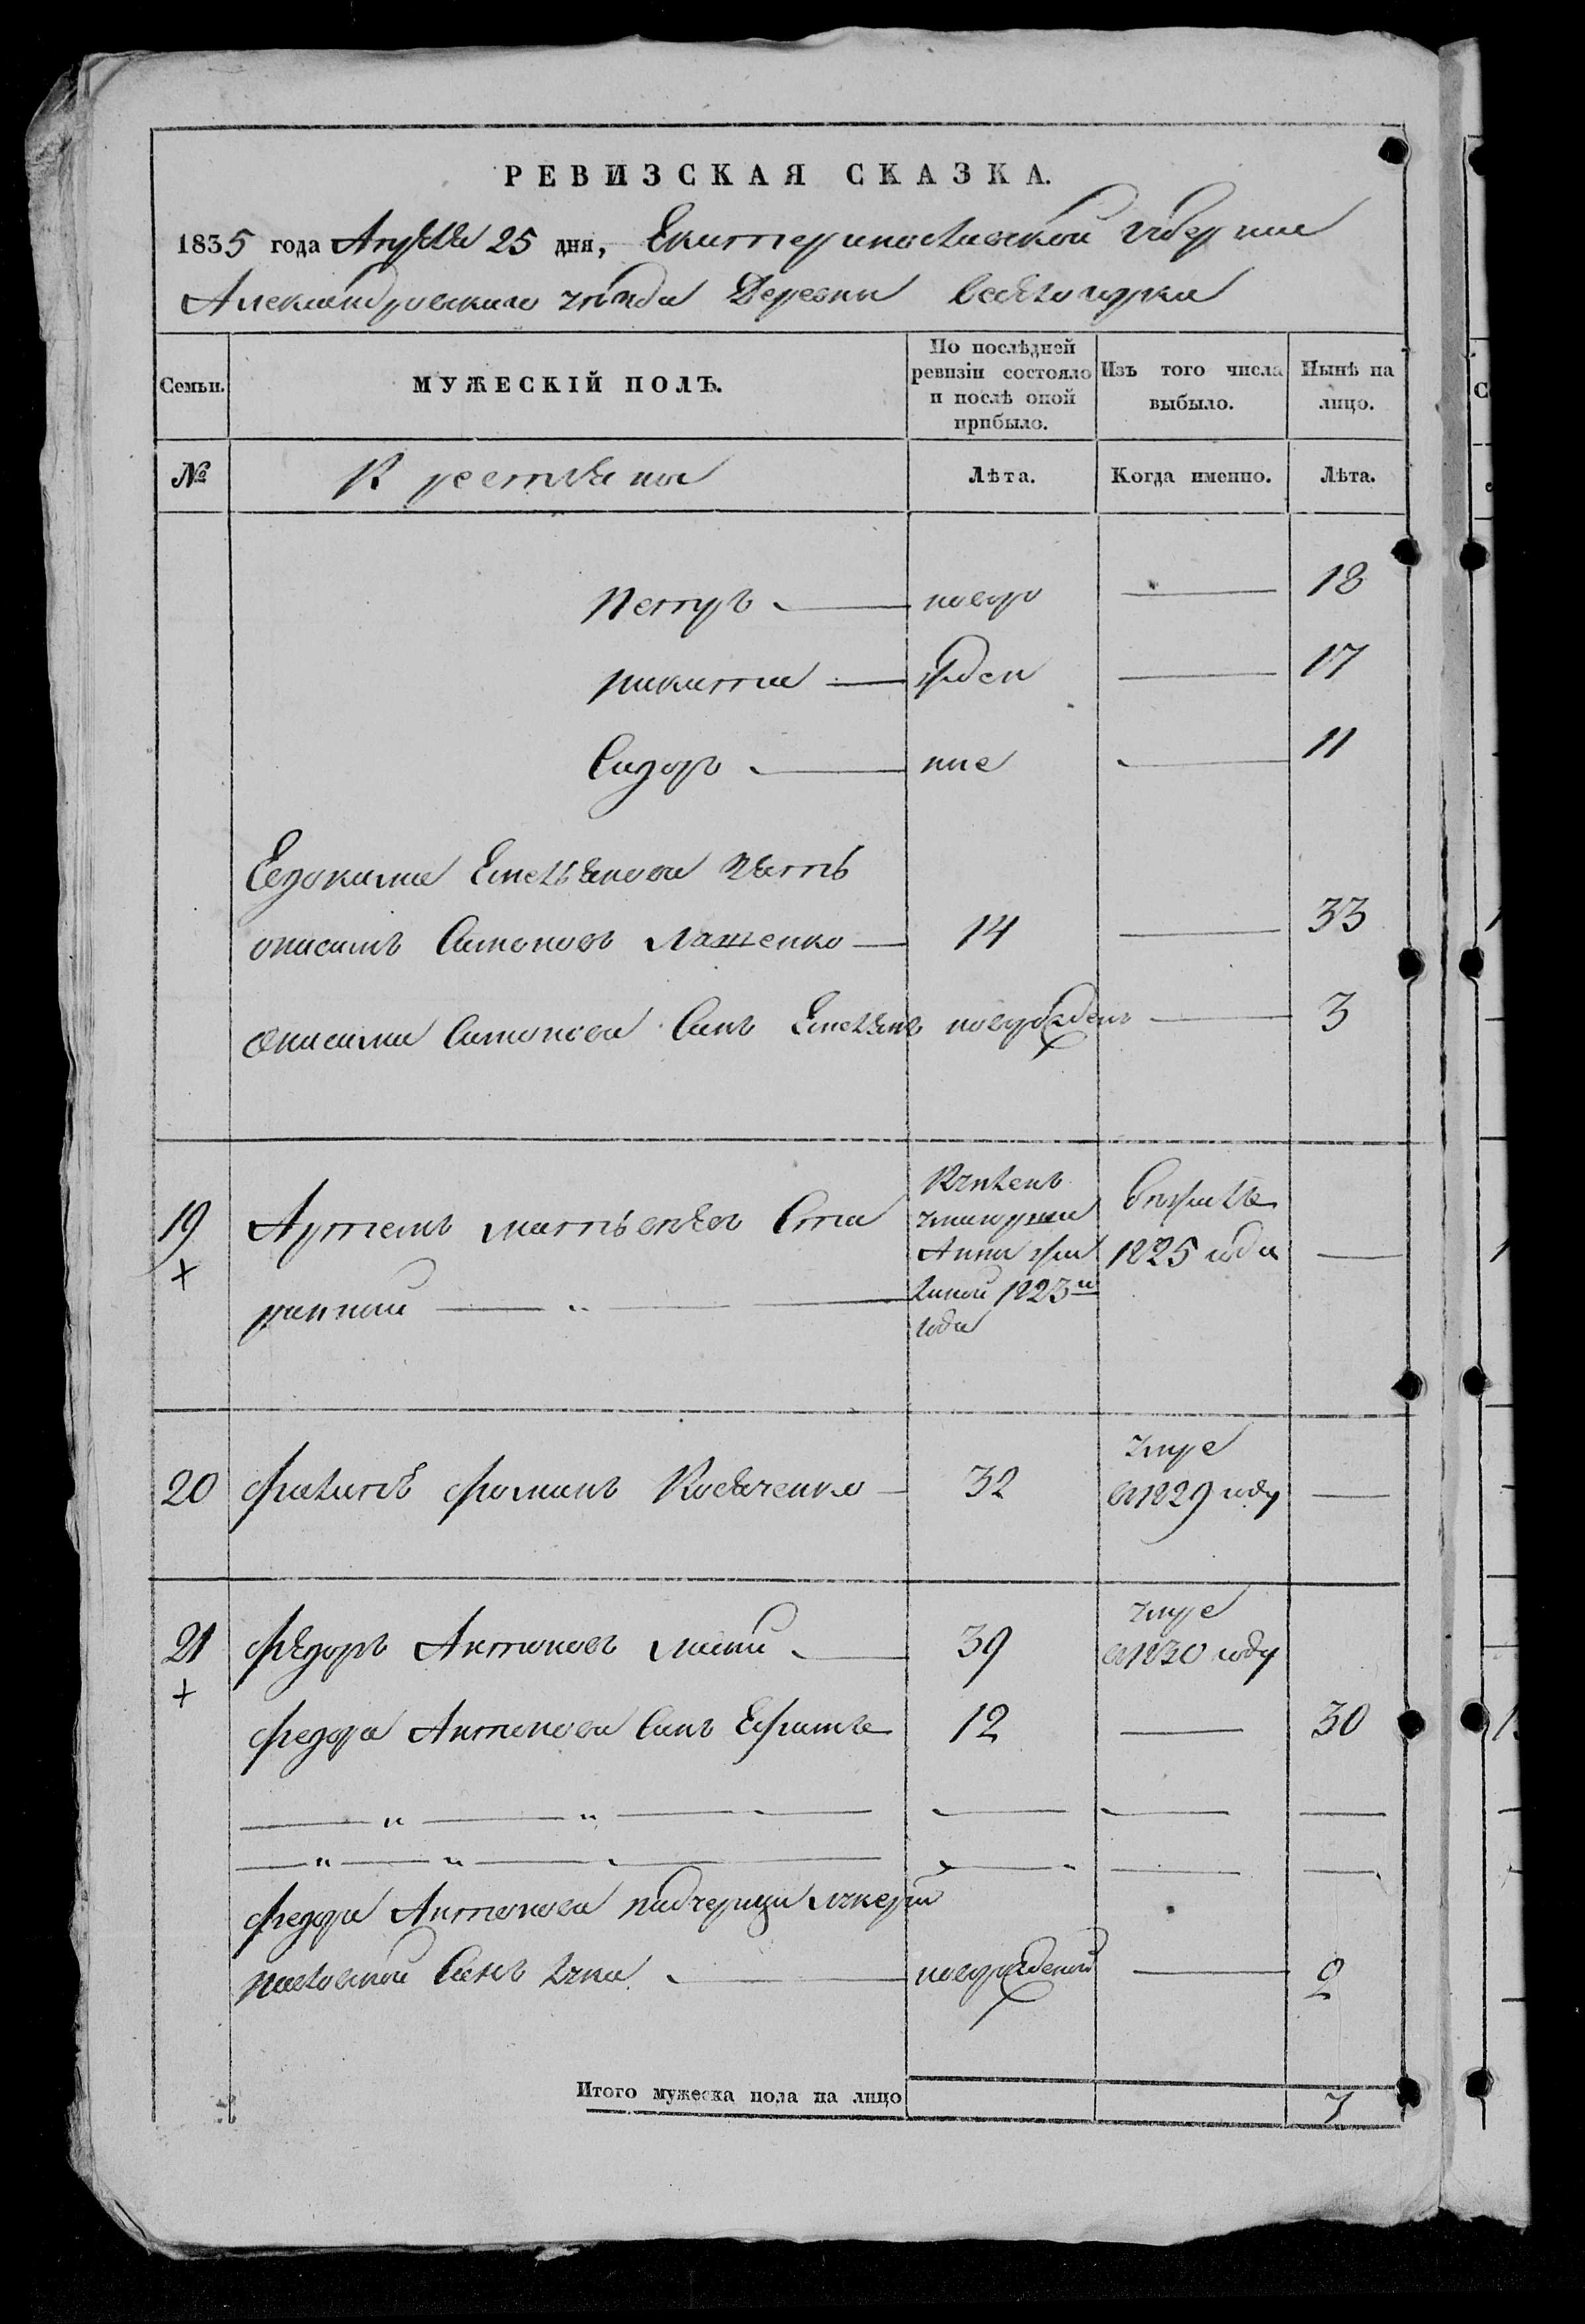 РЕВИЗСКАЯ СКАЗКА.
1835 года Апреля 25 дня, Екатеринославской Губернии
Александровского уѣзда Деревни
Семьи. МУЖЕСКІЙ ПОЛЪ. По послѣдней ревизіи состояло и послѣ оной прибыло. Изъ того числа выбыло. Нынѣ на лицо.
№ Крестьяне Лѣта. Когда именно. Лѣта.
Петръ — новоро — 18
Никита — жден — 17
Сидоръ — ние — 11
Евдокима Емельянова Зять
Онисимъ Симоновъ Лященко — 14 — 33
Онисима Симонова Сынъ Емельянъ новорожденъ — 3
19 Артемъ Матвеевъ Ста
+ ринной — " — 1823го года 1825 года —
20 Филипъ Фоминъ Ковеченко — 32 умре в 1829 году —
21 Федоръ Антоновъ — 39 умре в 1830 году
+ Федора Антонова Сынъ Ефимъ 12 — 30
— " — " — — — —
— " — " — — — —
Федора Антонова падчерицы
Сынъ Лука — новорожденой — 2
Итого мужеска пола на лицо 7